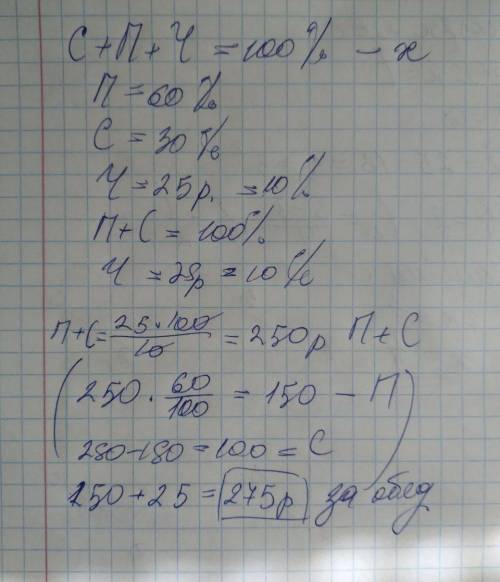 С+П+Ч = 100% - х
П = 60%
С = 30%
Ч = 25р. = 10%
П+С = 100%
Ч = 25р = 10%
П+С = 25·100/10 = 250р П+С
(250 · 60/100 = 150 - П
250-150 = 100 = С)
250 + 25 = 275р за обед